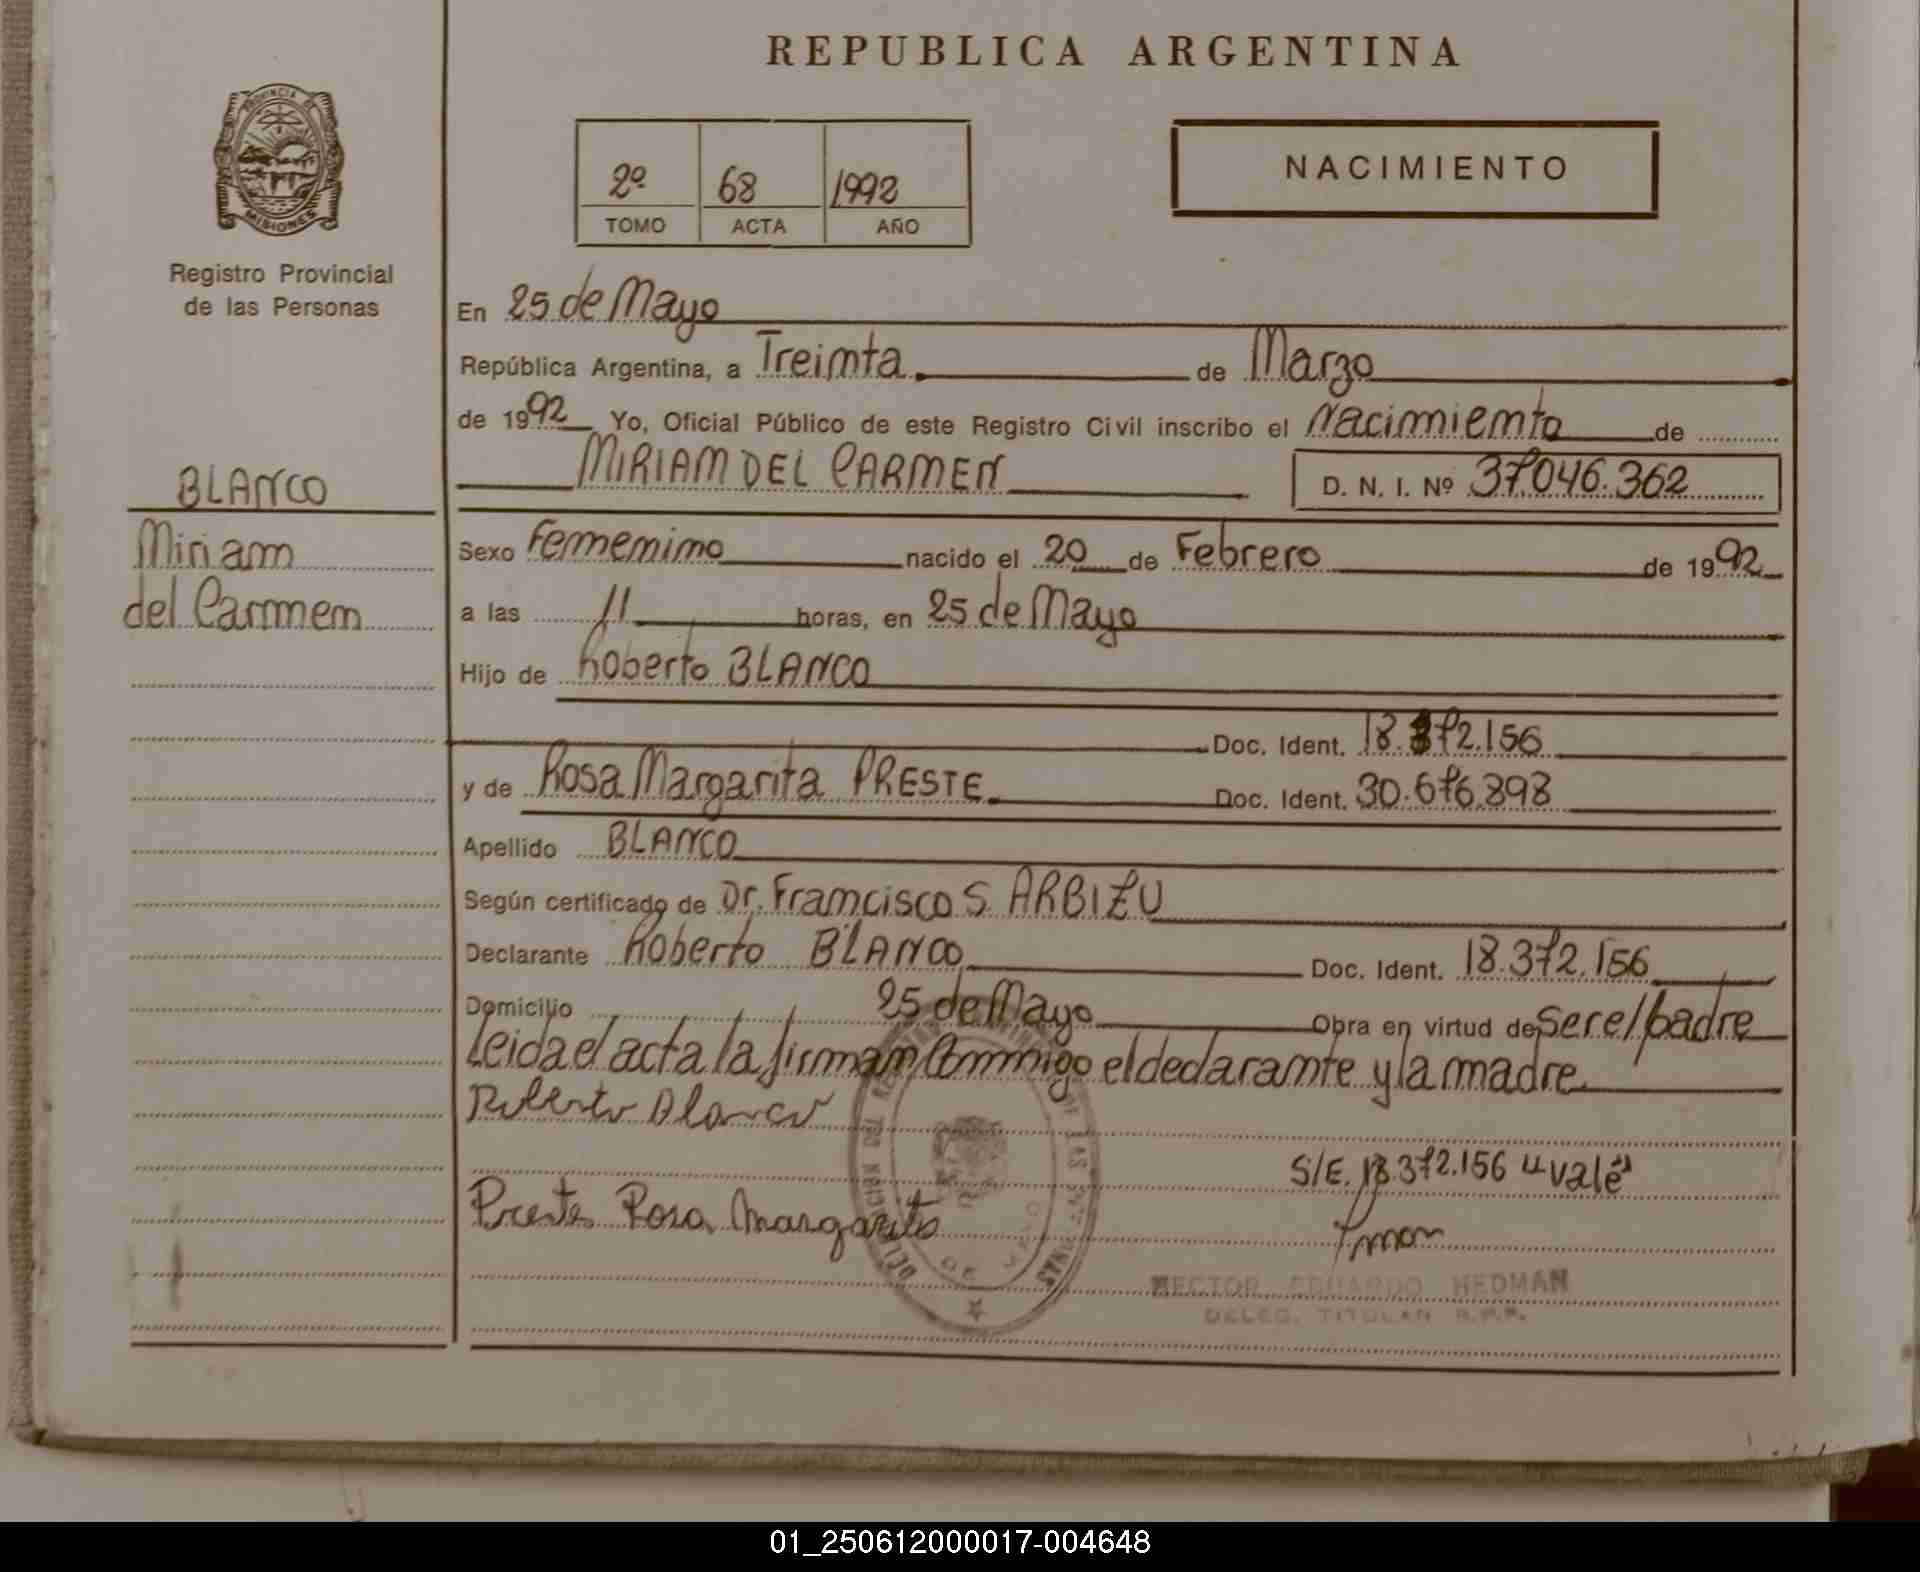 REPUBLICA ARGENTINA
PROVINCIA DE
MISIONES
Registro Provincial
de las Personas
2º 68 1992
TOMO ACTA AÑO
NACIMIENTO
En 25 de Mayo
República Argentina, a Treinta de Marzo
de 1992 Yo, Oficial Público de este Registro Civil inscribo el Nacimiento de
MIRIAM DEL CARMEN D. N. I. Nº 37.046.362
BLANCO
Miriam
del Carmen
Sexo Femenino nacido el 20 de Febrero de 1992
a las 11 horas, en 25 de Mayo
Hijo de Roberto BLANCO
Doc. Ident. 18.372.156
y de Rosa Margarita PRESTE Doc. Ident. 30.676.898
Apellido BLANCO
Según certificado de Dr. Francisco S. ARBIZU
Declarante Roberto BLANCO Doc. Ident. 18.372.156
Domicilio 25 de Mayo Obra en virtud de ser el padre
Leida el acta la firman conmigo el declarante y la madre
Roberto Blanco
S/E. 18.372.156 "vale"
Prestes Rosa Margarita
HECTOR EDUARDO HEDMAN
DELEG. TITULAR R.P.P.
01_250612000017-004648